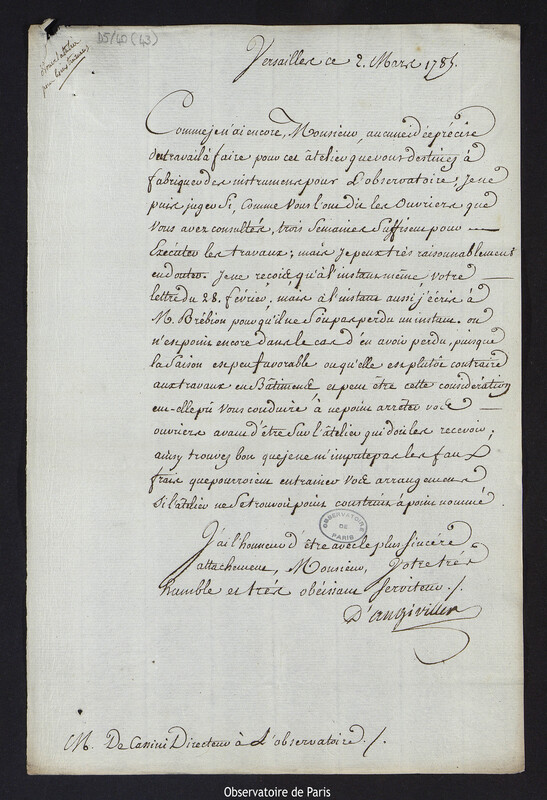 D5/40 (43)
pour l'atelier
pour construire
Versailles ce 2. Mars 1785.
Comme je n'ai encore, Monsieur, aucune idée précise
du travail à faire pour cet âtelier que vous destinez à
fabriquer des instrumens pour L'observatoire, Je ne
puis juger Si, Comme Vous l'ont dit les Ouvriers que
Vous avez consultés, trois Semaines Suffisent pour
Exécuter les travaux; mais Je peux très raisonnablement
en douter. Je ne reçois qu'à l'instant même Votre
lettre du 28. février; mais à l'instant aussi j'écris à
M. Brébion pour qu'il ne Soit pas perdu un instant. on
n'est point encore dans le cas d'en avoir perdu, puisque
la Saison est peu favorable ou qu'elle est plutôt contraire
aux travaux en Bâtiment et peut être cette considération
eut-elle pû Vous conduire à ne point arrêter vos
ouvriers avant d'être Sur l'atelier qui doit les recevoir;
aussy trouvez bon que je ne m'impute pas les faux
frais que pourroient entrainer Vos arrangemens
Si l'atelier ne Se trouvoit point construit à point nommé.
OBSERVATOIRE DE PARIS
J'ai l'honneur d'être avec le plus Sincère
attachement, Monsieur, Votre très
humble et très obéissant Serviteur ./.
D'angiviller
M. De Cassini Directeur à L'observatoire ./.
Observatoire de Paris